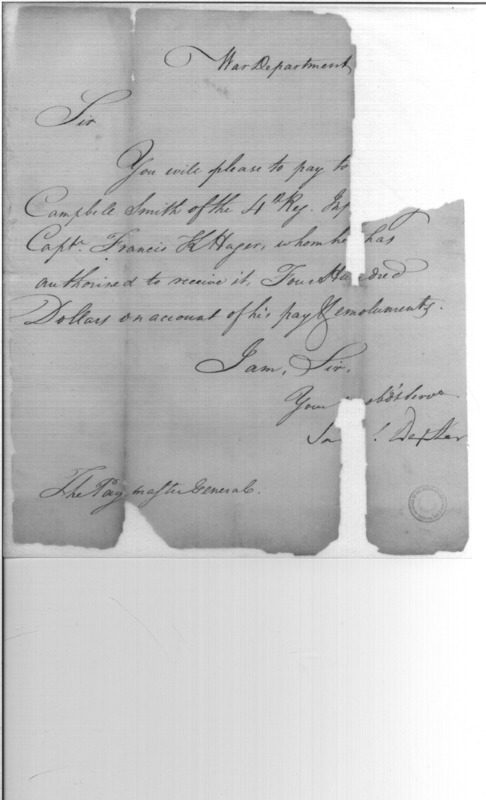 War Department
Sir
You will please to pay to
Campbell Smith of the 4th Reg.
Capt. Francis K Huger, whom he has
authorised to receive it, Four Hundred
Dollars on account of his pay & emoluments.
I am, Sir,
Your obdt serva
Sa l Dexter
The Pay master General.